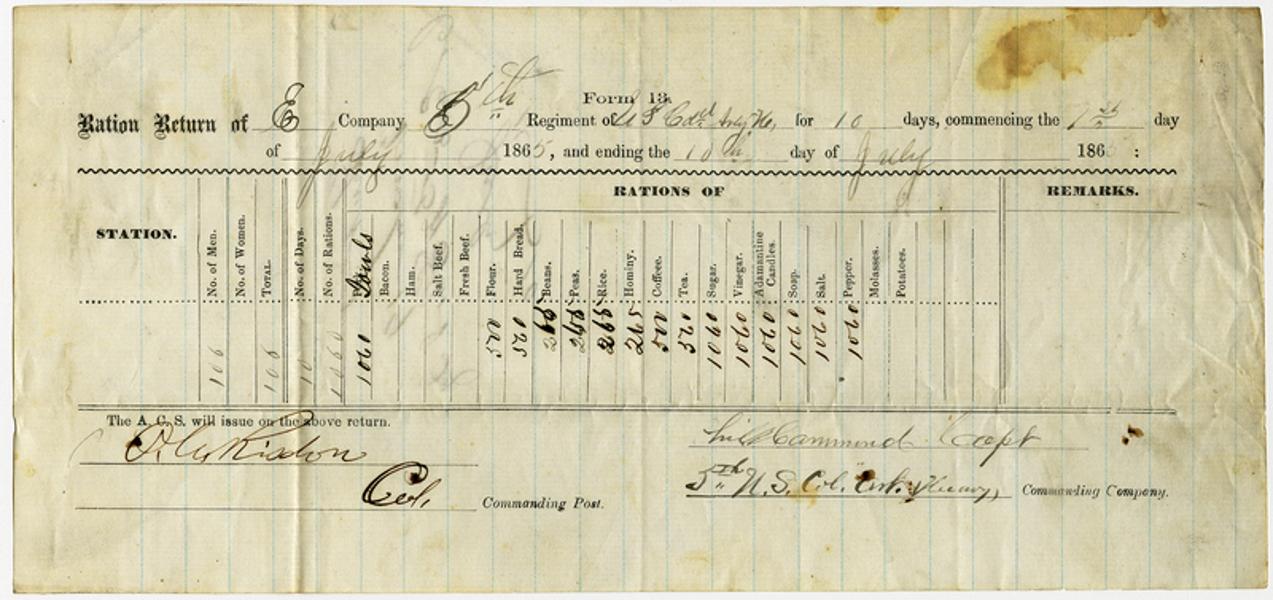 Form 13.
Ration Return of E Company 5th Regiment of U S Cold Arty Hv, for 10 days, commencing the 1st day
of July 1865, and ending the 10th day of July 1865 :
RATIONS OF REMARKS.
STATION. No. of Men. No. of Women. TOTAL. No. of Days. No. of Rations. Bacon. Ham. Salt Beef. Fresh Beef. Flour. Hard Bread. Beans. Peas. Rice. Hominy. Coffee. Tea. Sugar. Vinegar. Adamantine Candles. Soap. Salt. Pepper. Molasses. Potatoes.
106 106 10 1060 1060 265 265 265 265 1060 1060 1060 1060 1060 1060
The A. C. S. will issue on the above return.
Hammond Capt
5th U.S. Col. Art. Heavy, Commanding Company.
Col. Commanding Post.